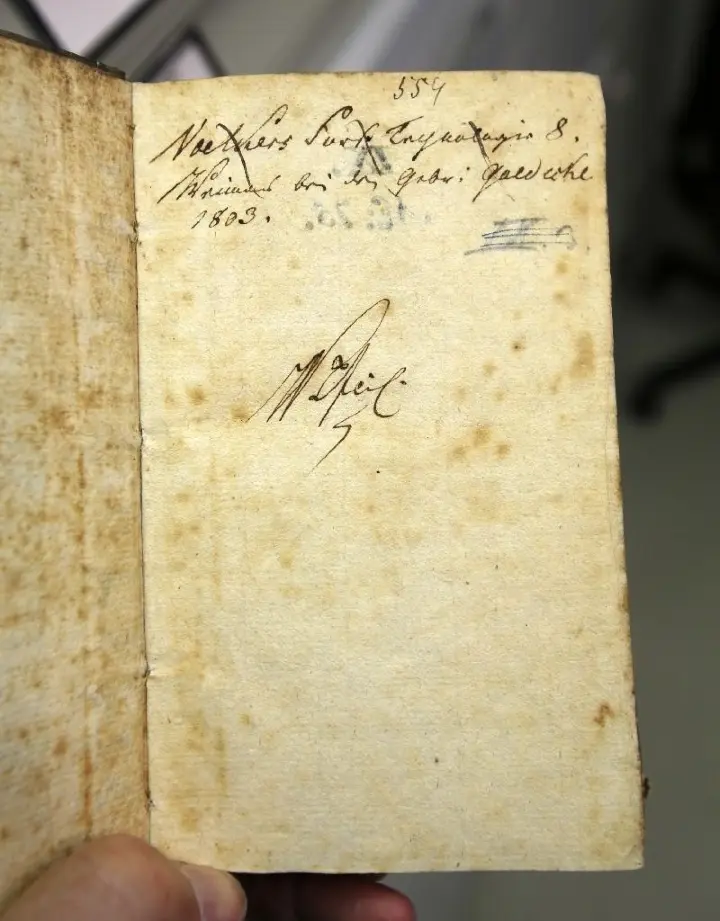 559
Voelkers Forst Technologie 8.
Weimar bei den Gebr: Gaedicke
1803.
W Pfeil.